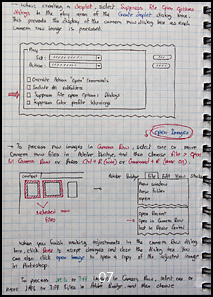 When creating a droplet, select Suppress File Open Options
Dialogs in the Play area of the Create Droplet dialog box.
This prevents the display of the Camera Raw dialog box as each
Camera Raw image is processed.
Play
Set :
Action :
Override Action "Open" Commands
Include All Subfolders
Suppress File Open Options Dialogs
Suppress Color Profile Warnings
Open Images
→ To process raw images in Camera Raw, select one or more
Camera Raw files in Adobe Bridge, and then choose File > Open
In Camera Raw or press Ctrl + R (win) or Command + R (Mac OS)
Content
Adobe Bridge
File Edit View
New Window
New Folder
Open
Open Recent
Open in Camera Raw
selected
files
107
When you finish making adjustments in the Camera Raw dialog
box, click Done to accept changes and close the dialog box. You
can also click Open Image to open a copy of the adjusted image
in Photoshop.
To process JPEG or TIFF images in Camera Raw, select one or
more JPEG or TIFF files in Adobe Bridge, and then choose